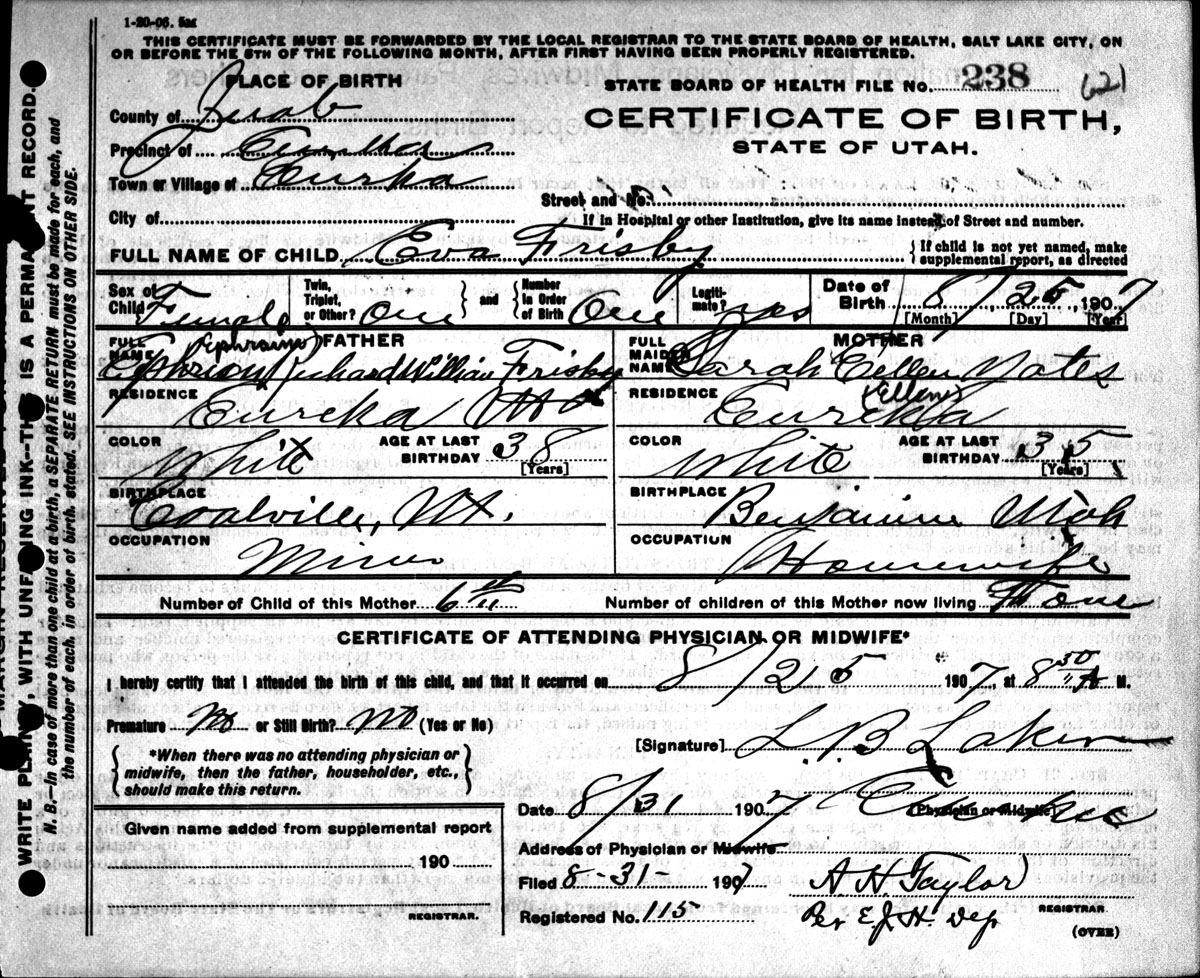 1-20-06. 5m
THIS CERTIFICATE MUST BE FORWARDED BY THE LOCAL REGISTRAR TO THE STATE BOARD OF HEALTH, SALT LAKE CITY, ON
OR BEFORE THE 5TH OF THE FOLLOWING MONTH, AFTER FIRST HAVING BEEN PROPERLY REGISTERED.
PLACE OF BIRTH
STATE BOARD OF HEALTH FILE NO. 238 621
County of Juab
CERTIFICATE OF BIRTH,
STATE OF UTAH.
Precinct of Eureka
Town or Village of Eureka
Street and No.
City of
If in Hospital or other Institution, give its name instead of Street and number.
FULL NAME OF CHILD Eva Frisby
If child is not yet named, make supplemental report, as directed
Sex of Child Female
Twin, Triplet, or Other? One and Number In Order of Birth One
Legitimate? yes
Date of Birth 8 / 25, 1907
[Month] [Day] [Year]
FATHER
FULL NAME Ephriom Richard William Frisby
Ephraim
RESIDENCE Eureka
COLOR White
AGE AT LAST BIRTHDAY 38 [Years]
BIRTHPLACE Coalville, Ut.
OCCUPATION Miner
MOTHER
FULL MAIDEN NAME Sarah Eellen Yates
Ellen
RESIDENCE Eureka
COLOR White
AGE AT LAST BIRTHDAY 35 [Years]
BIRTHPLACE Benjamin Utah
OCCUPATION Housewife
Number of Child of this Mother 6th
Number of children of this Mother now living
CERTIFICATE OF ATTENDING PHYSICIAN OR MIDWIFE*
I hereby certify that I attended the birth of this child, and that it occurred on 8/25 1907 at 8 50 A M.
Premature No or Still Birth? No (Yes or No)
[Signature] L. B. Laker
*When there was no attending physician or
midwife, then the father, householder, etc.,
should make this return.
Date 8/31 1907
(Physician or Midwife)
Given name added from supplemental report
190
REGISTRAR.
Address of Physician or Midwife
Filed 8-31- 1907 A H Taylor
Registered No. 115 Per E.J.H. Dep
REGISTRAR
(OVER)
WRITE PLAINLY WITH UNFADING INK—THIS IS A PERMANENT RECORD.
N. B.—In case of more than one child at a birth, a SEPARATE RETURN must be made for each, and
the number of each, in order of birth, stated. SEE INSTRUCTIONS ON OTHER SIDE.